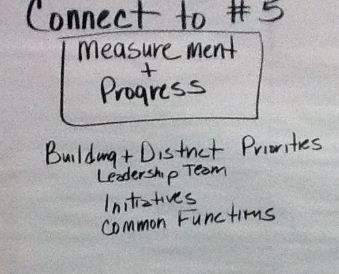 Connect to #5
Measurement
+
Progress
Building + District Priorities
Leadership Team
Initiatives
Common Functions